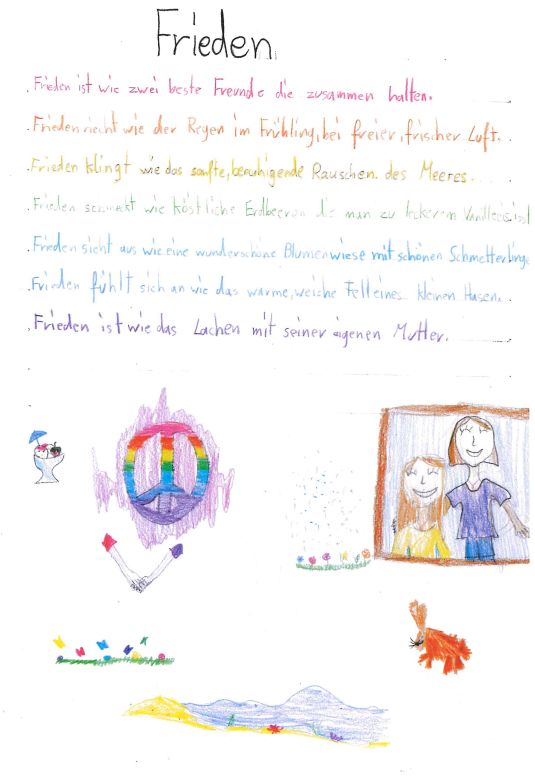 Frieden
Frieden ist wie zwei beste Freunde die zusammen halten.
Frieden riecht wie der Regen im Frühling, bei freier, frischer Luft.
Frieden klingt wie das sanfte, beruhigende Rauschen des Meeres.
Frieden schmeckt wie köstliche Erdbeeren die man zu leckerem Vanilleeis isst
Frieden sieht aus wie eine wunderschöne Blumenwiese mit schönen Schmetterlinge
Frieden fühlt sich an wie das warme, weiche Fell eines kleinen Hasen.
Frieden ist wie das Lachen mit seiner eigenen Mutter.